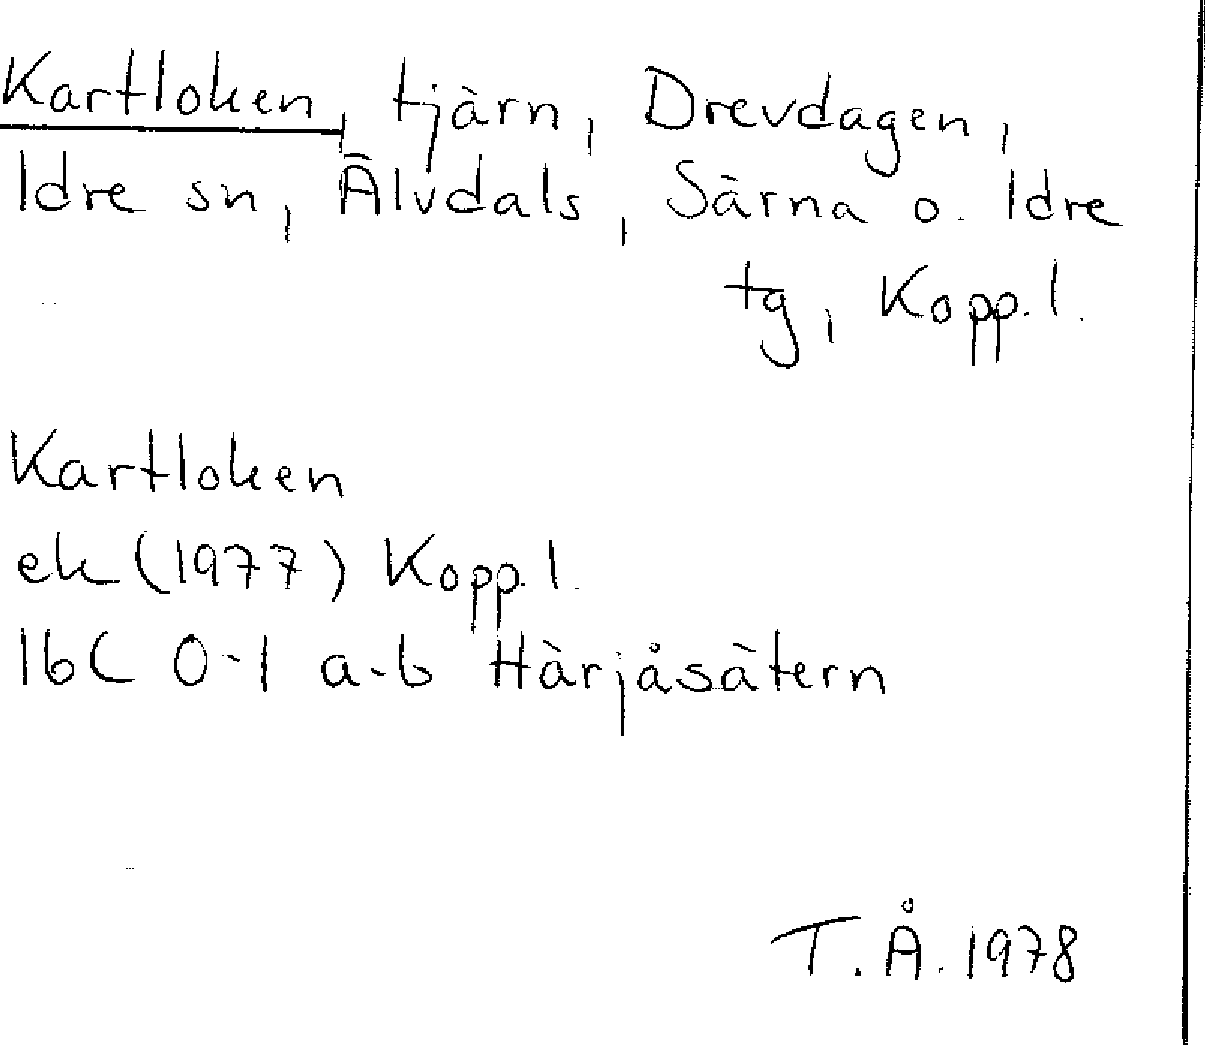 Kartloken, tjärn, Drevdagen,
Idre sn, Älvdals, Särna o. Idre
tg, Kopp. l.
Kartloken
ek (1977) Kopp. l.
16C 0-1 a-b Härjåsätern
T. Å. 1978